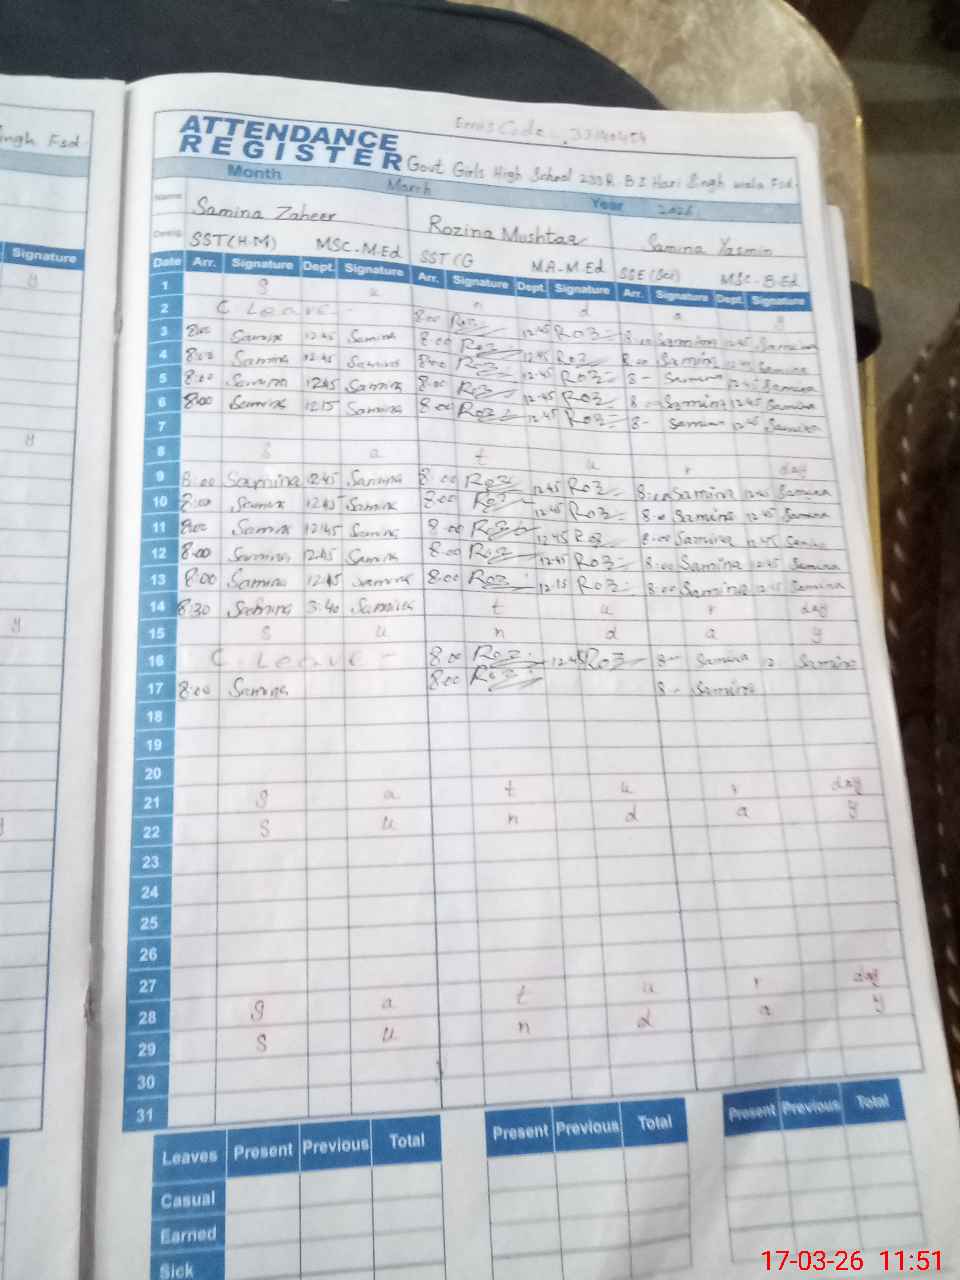 Singh Fsd.
Signature
ATTENDANCE
REGISTER
Govt Girls High School 233 R.B I Hari Singh wala Fsd.
Month March Year 2026
Name Samina Zaheer Rozina Mushtaq Samina Yasmin
SST(H.M) MSC-M.Ed SST(G MA-M.Ed SSE(Sci) MSC-B.Ed
Date Arr. Signature Dept. Signature Arr. Signature Dept. Signature Arr. Signature Dept. Signature
1 S u n d a y
2 C Leave - 8:00 Roz 12:45 Roz 8:00 Samina 12:45 Samina
3 8:00 Samina 12:45 Samina 8:00 Roz 12:45 Roz 8:00 Samina 12:45 Samina
4 8:00 Samina 12:45 Samina 8:00 Roz 12:45 Roz 8- Samina 12:45 Samina
5 8:00 Samina 12:45 Samina 8:00 Roz 12:45 Roz 8:00 Samina 12:45 Samina
6 8:00 Samina 12:15 Samina 8:00 Roz 12:45 Roz 8- Samina 12:45 Samina
7
8 S a t u r day
9 8:00 Samina 12:45 Samina 8:00 Roz 12:45 Roz 8:00 Samina 12:45 Samina
10 8:00 Samina 12:45 Samina 8:00 Roz 12:45 Roz 8:00 Samina 12:45 Samina
11 8:00 Samina 12:45 Samina 8:00 Roz 12:45 Roz 8:00 Samina 12:45 Samina
12 8:00 Samina 12:45 Samina 8:00 Roz 12:45 Roz 8:00 Samina 12:45 Samina
13 8:00 Samina 12:45 Samina 8:00 Roz 12:15 Roz 8:00 Samina 12:45 Samina
14 8:30 Samina 3:40 Samina t u r day
15 S u n d a y
16 C. Leave - 8:00 Roz 12:45 Roz 8- Samina 12. Samina
17 8:00 Samina 8:00 Roz 8- Samina
18
19
20
21 S a t u r day
22 S u n d a y
23
24
25
26
27
28 S a t u r day
29 S u n d a y
30
31
Leaves Present Previous Total Present Previous Total Present Previous Total
Casual
Earned
Sick
17-03-26 11:51